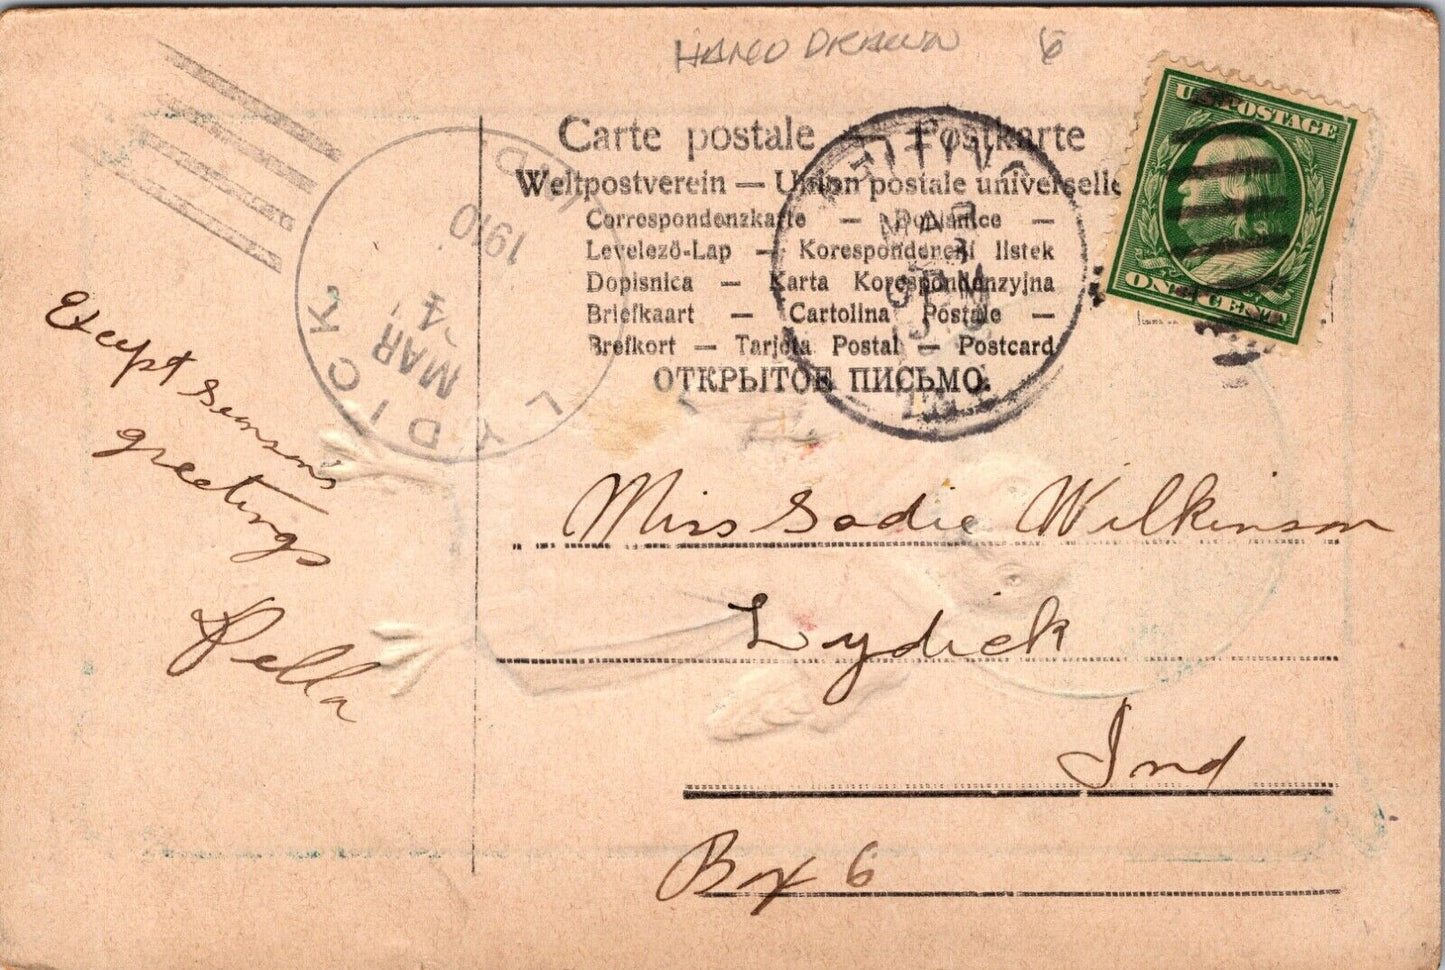 HAND DRAWN 6
Carte postale — Postkarte
Weltpostverein — Union postale universelle
Correspondenzkarte — Dopisnice —
Levelező-Lap — Korespondenční listek
Dopisnica — Karta Korespondenzyjna
Briefkaart — Cartolina Postale —
Brefkort — Tarjeta Postal — Postcard
ОТКРЫТОЕ ПИСЬМО.
U.S. POSTAGE
ONE CENT
LYDICK IND.
MAR
4
1910
MAR
3
PM
Except Seasons
greetings
Della
Miss Sadie Wilkinson
Lydick
Ind
Box 6